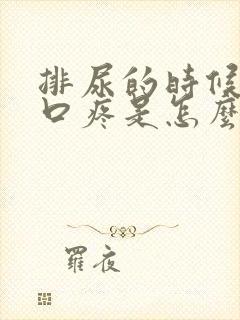 排尿的時候
口疼是怎麼
羅夜